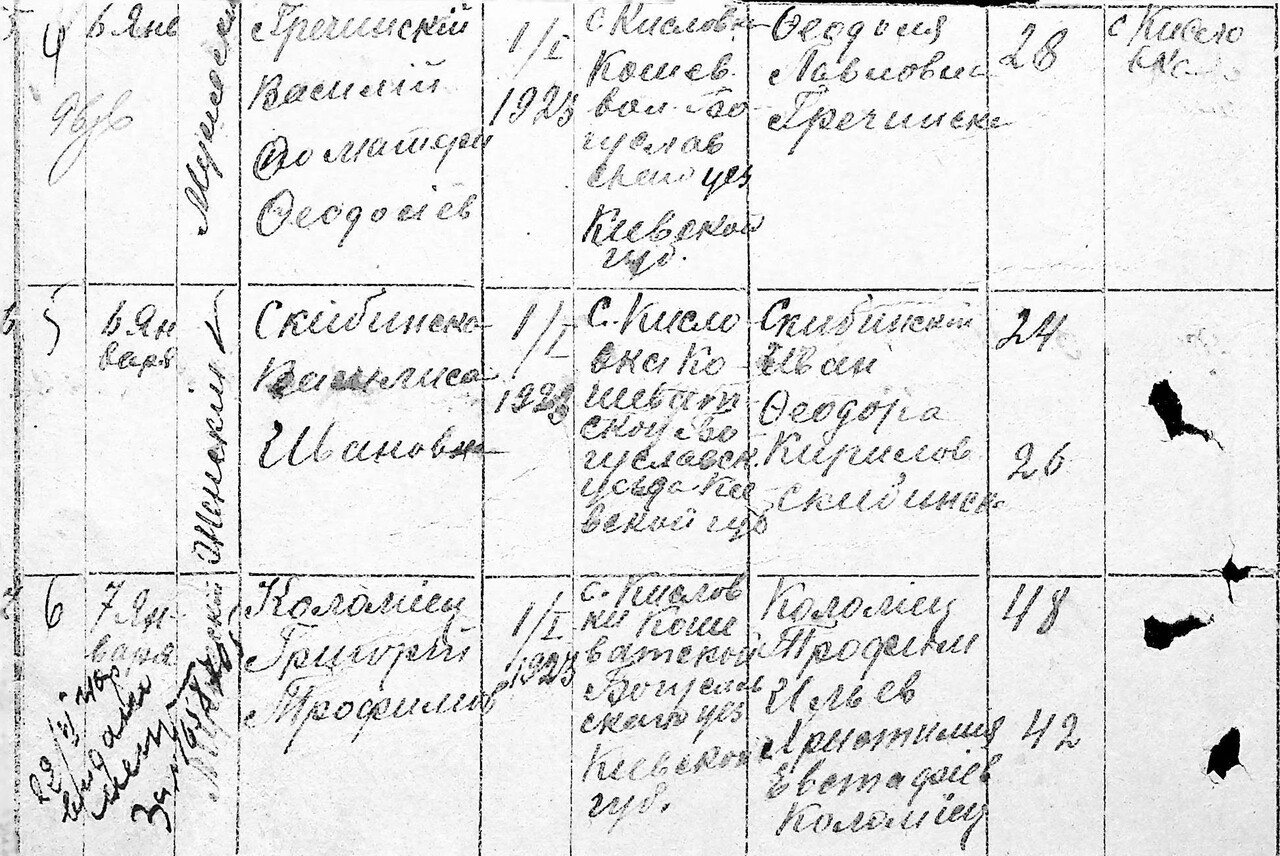 4
6 Янв
Мужской
Гречинский
Василий
По матери
Феодосіев
1/I
1923
с. Кисловк
Кошев.
вол. Бо-
гуслав
скаго уез
Киевской
губ.
Феодосия
Павловна
Гречинск
28
с Кисло
вка
5
6 Ян
варя
Женский
Скибинска
Василиса
Ивановн
1/I
1923
с. Кисло
вки Ко-
шеват-
ской Бо
гуславск.
уезда Кие
вской губ
Скибинский
Иван
Феодора
Кирилов
Скибинск
24
26
6
7 Ян-
варя
Мужской
Коломіец
Григорій
Трофимов
1/I
1923
с. Кислов
ки Коше
ватской
Богуслав
скаго уез
Киевской
губ.
Коломіец
Трофим
Ильев
Христиния
Евстафіев
Коломіец
48
42